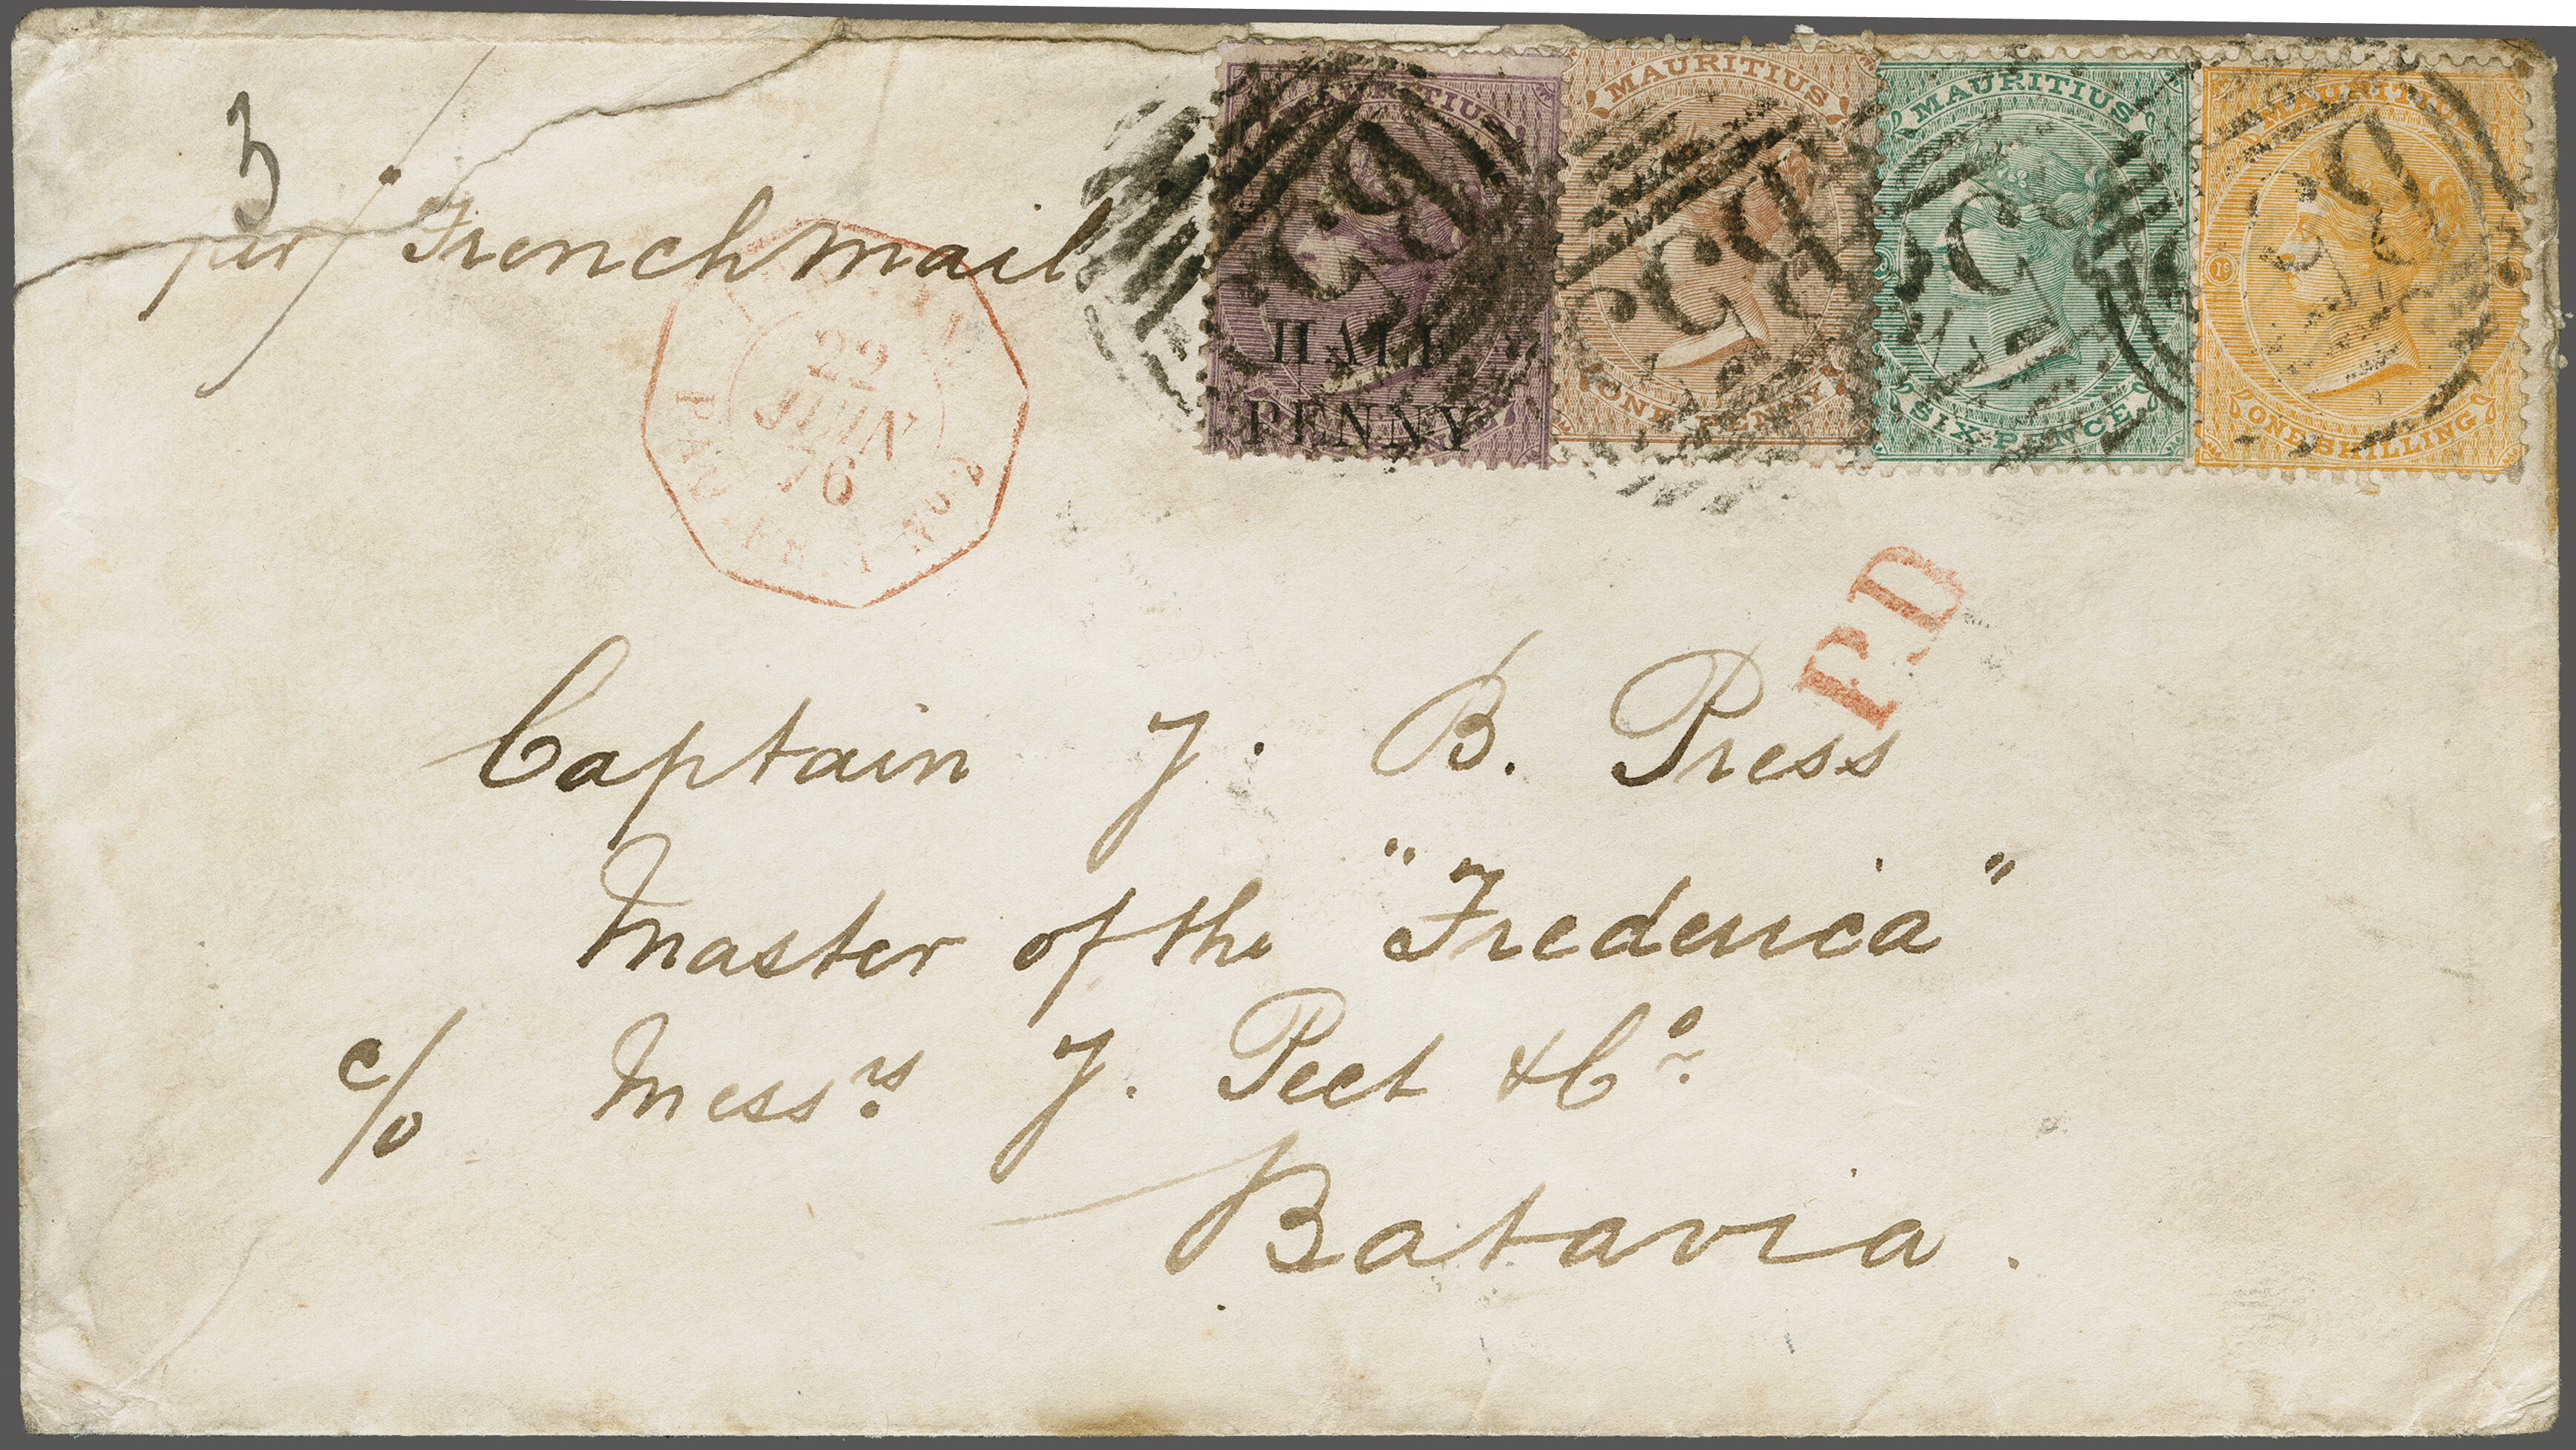 3
per French mail
MAURITIUS
HALF
PENNY
MAURITIUS
ONE PENNY
MAURITIUS
SIX PENCE
MAURITIUS
ONE SHILLING
B53
B53
B53
B53
22
JUIN
76
PAQ. FR.
P.D
Captain J. B. Press
Master of the "Frederica"
c/o Messrs. J. Peet & Co.
Batavia.